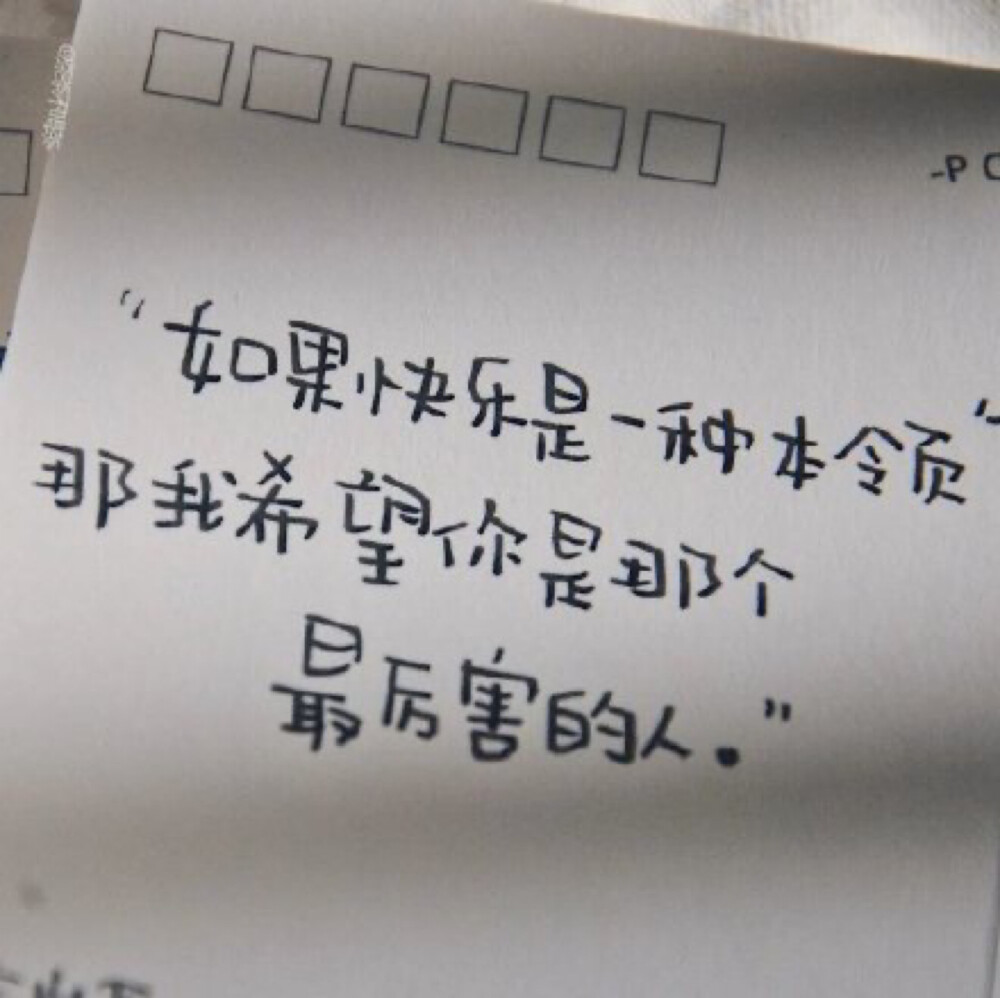 -P
"如果快乐是一种本领"
那我希望你是那个
最厉害的人."